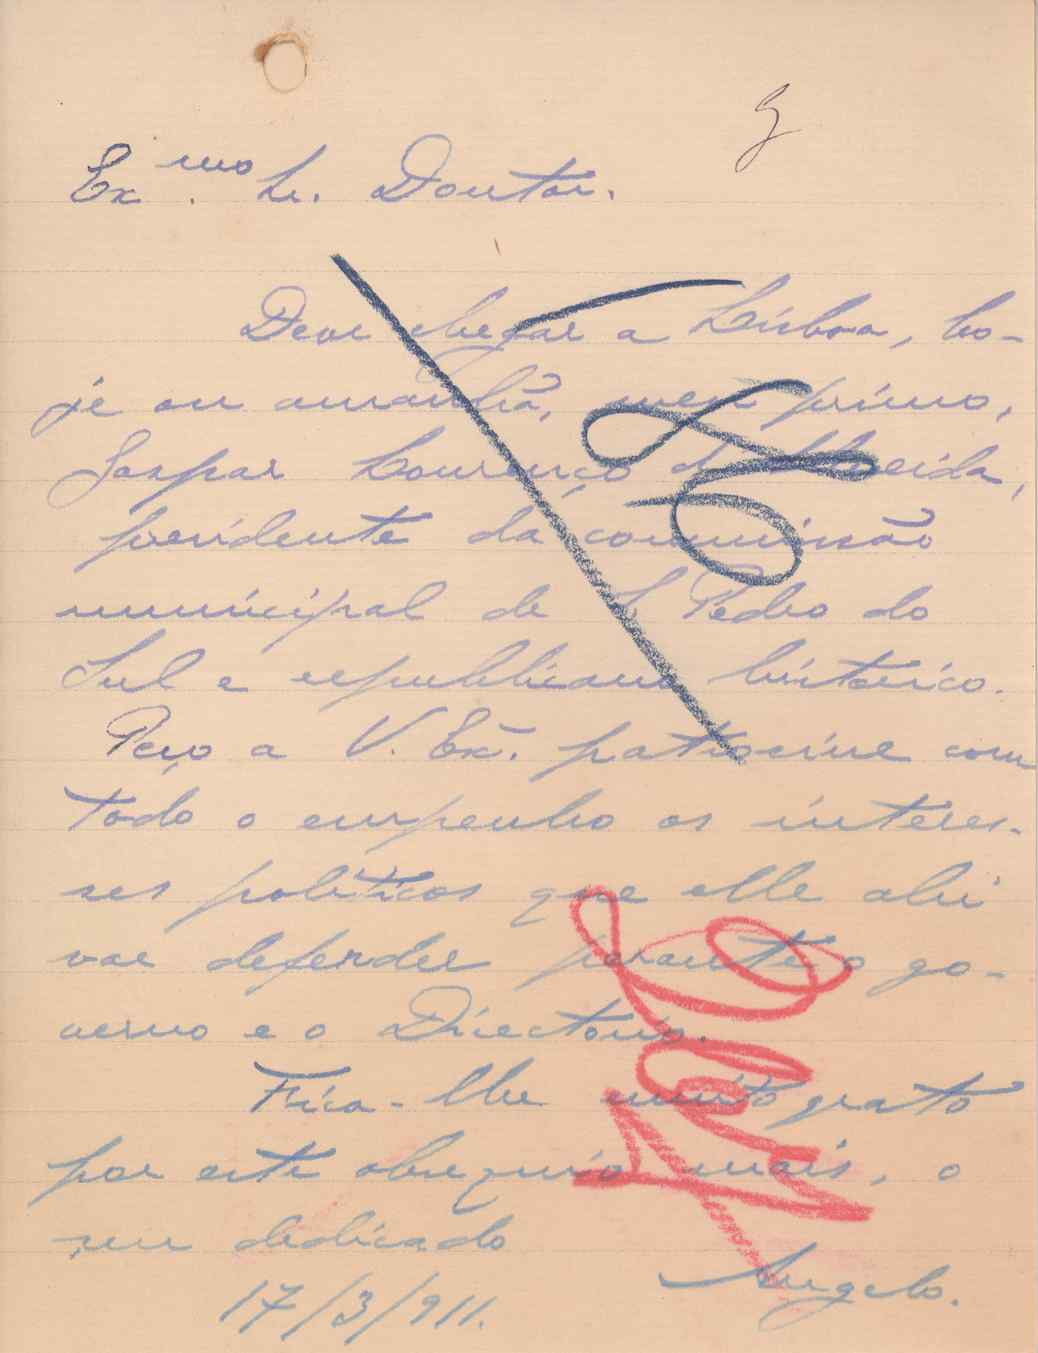 Ex.mo Sr. Doutor.
Deve chegar a Lisboa, ho-
je ou amanhã, meu primo,
Gaspar Lourenço d'Almeida,
presidente da commissão
municipal de S. Pedro do
Sul e republicano historico.
Peço a V. Exª. patrocine com
todo o empenho os interes-
ses politicos que elle ahi
vae defender perante o go-
verno e o Directorio.
Fica-lhe muito grato
por este obsequio mais, o
seu dedicado
Angelo.
17/3/911.